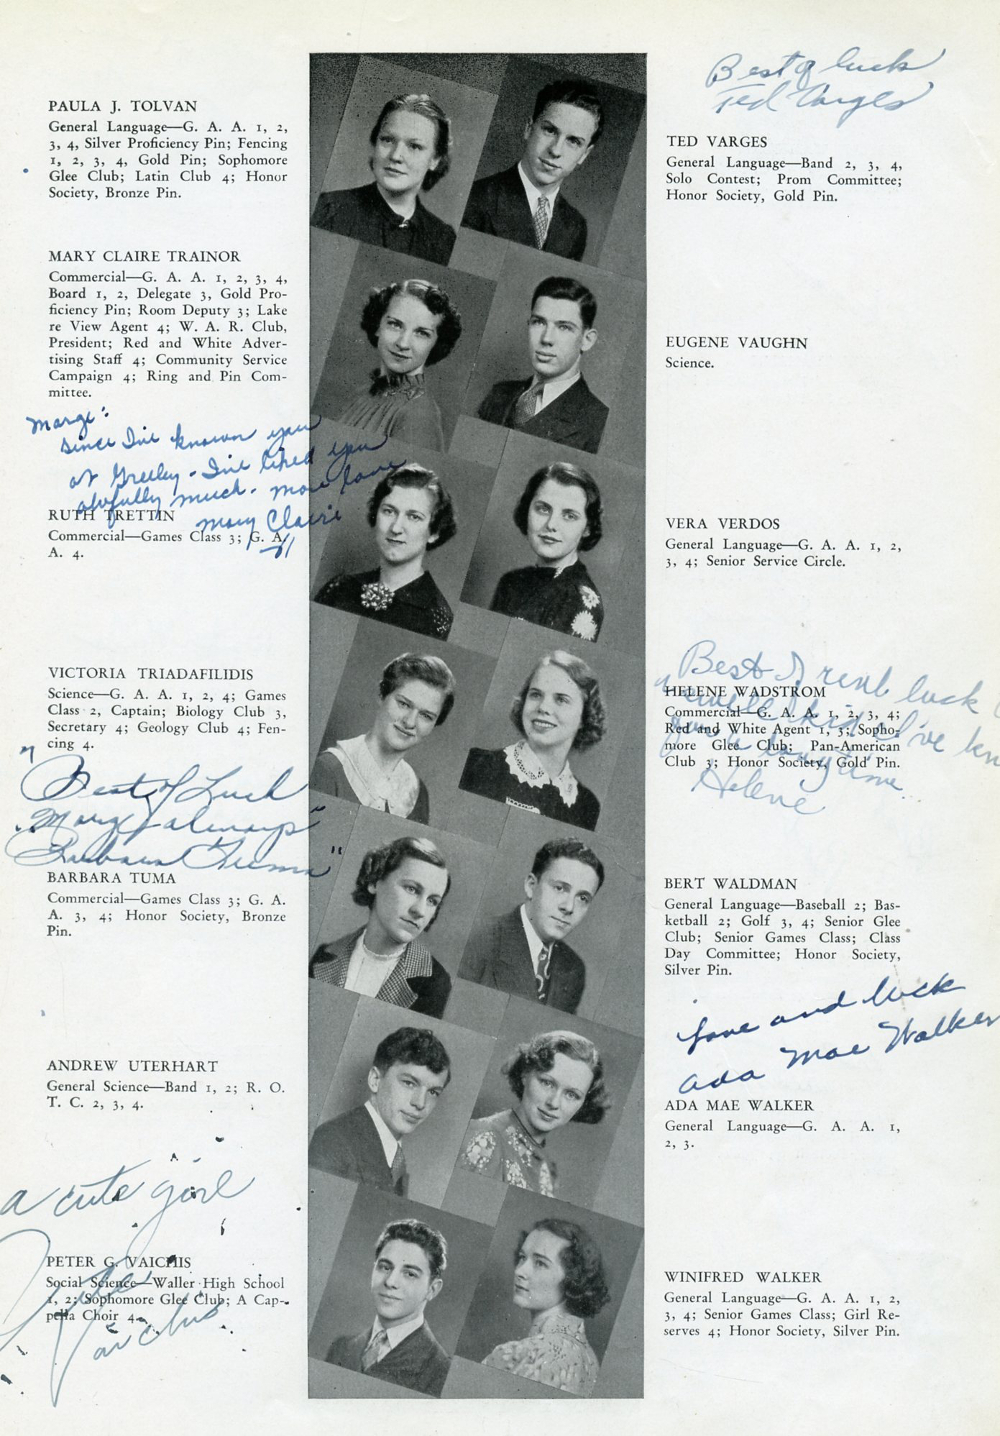 PAULA J. TOLVAN
General Language—G. A. A. 1, 2,
3, 4, Silver Proficiency Pin; Fencing
1, 2, 3, 4, Gold Pin; Sophomore
Glee Club; Latin Club 4; Honor
Society, Bronze Pin.
MARY CLAIRE TRAINOR
Commercial—G. A. A. 1, 2, 3, 4,
Board 1, 2, Delegate 3, Gold Pro-
ficiency Pin; Room Deputy 3; Lake
re View Agent 4; W. A. R. Club,
President; Red and White Adver-
tising Staff 4; Community Service
Campaign 4; Ring and Pin Com-
mittee.
Marge:
Since I've known you
at Greeley - I've liked you
awfully much. more love
Mary Claire
RUTH TRETTIN
Commercial—Games Class 3; G. A.
A. 4.
VICTORIA TRIADAFILIDIS
Science—G. A. A. 1, 2, 4; Games
Class 2, Captain; Biology Club 3,
Secretary 4; Geology Club 4; Fen-
cing 4.
"Best of Luck
Marge, always
Barbara Tuma"
BARBARA TUMA
Commercial—Games Class 3; G. A.
A. 3, 4; Honor Society, Bronze
Pin.
ANDREW UTERHART
General Science—Band 1, 2; R. O.
T. C. 2, 3, 4.
a cute girl
PETER G. VAICHIS
Social Science—Waller High School
1, 2; Sophomore Glee Club; A Cap-
pella Choir 4.
Pete
Vaichis
Best of luck
Ted Varges
TED VARGES
General Language—Band 2, 3, 4,
Solo Contest; Prom Committee;
Honor Society, Gold Pin.
EUGENE VAUGHN
Science.
VERA VERDOS
General Language—G. A. A. 1, 2,
3, 4; Senior Service Circle.
Best of real luck
HELENE WADSTROM
Commercial—G. A. A. 1, 2, 3, 4;
Red and White Agent 1, 3; Sopho-
more Glee Club; Pan-American
Club 3; Honor Society, Gold Pin.
I've kn
Helene
BERT WALDMAN
General Language—Baseball 2; Bas-
ketball 2; Golf 3, 4; Senior Glee
Club; Senior Games Class; Class
Day Committee; Honor Society,
Silver Pin.
Love and luck
Ada Mae Walker
ADA MAE WALKER
General Language—G. A. A. 1,
2, 3.
WINIFRED WALKER
General Language—G. A. A. 1, 2,
3, 4; Senior Games Class; Girl Re-
serves 4; Honor Society, Silver Pin.